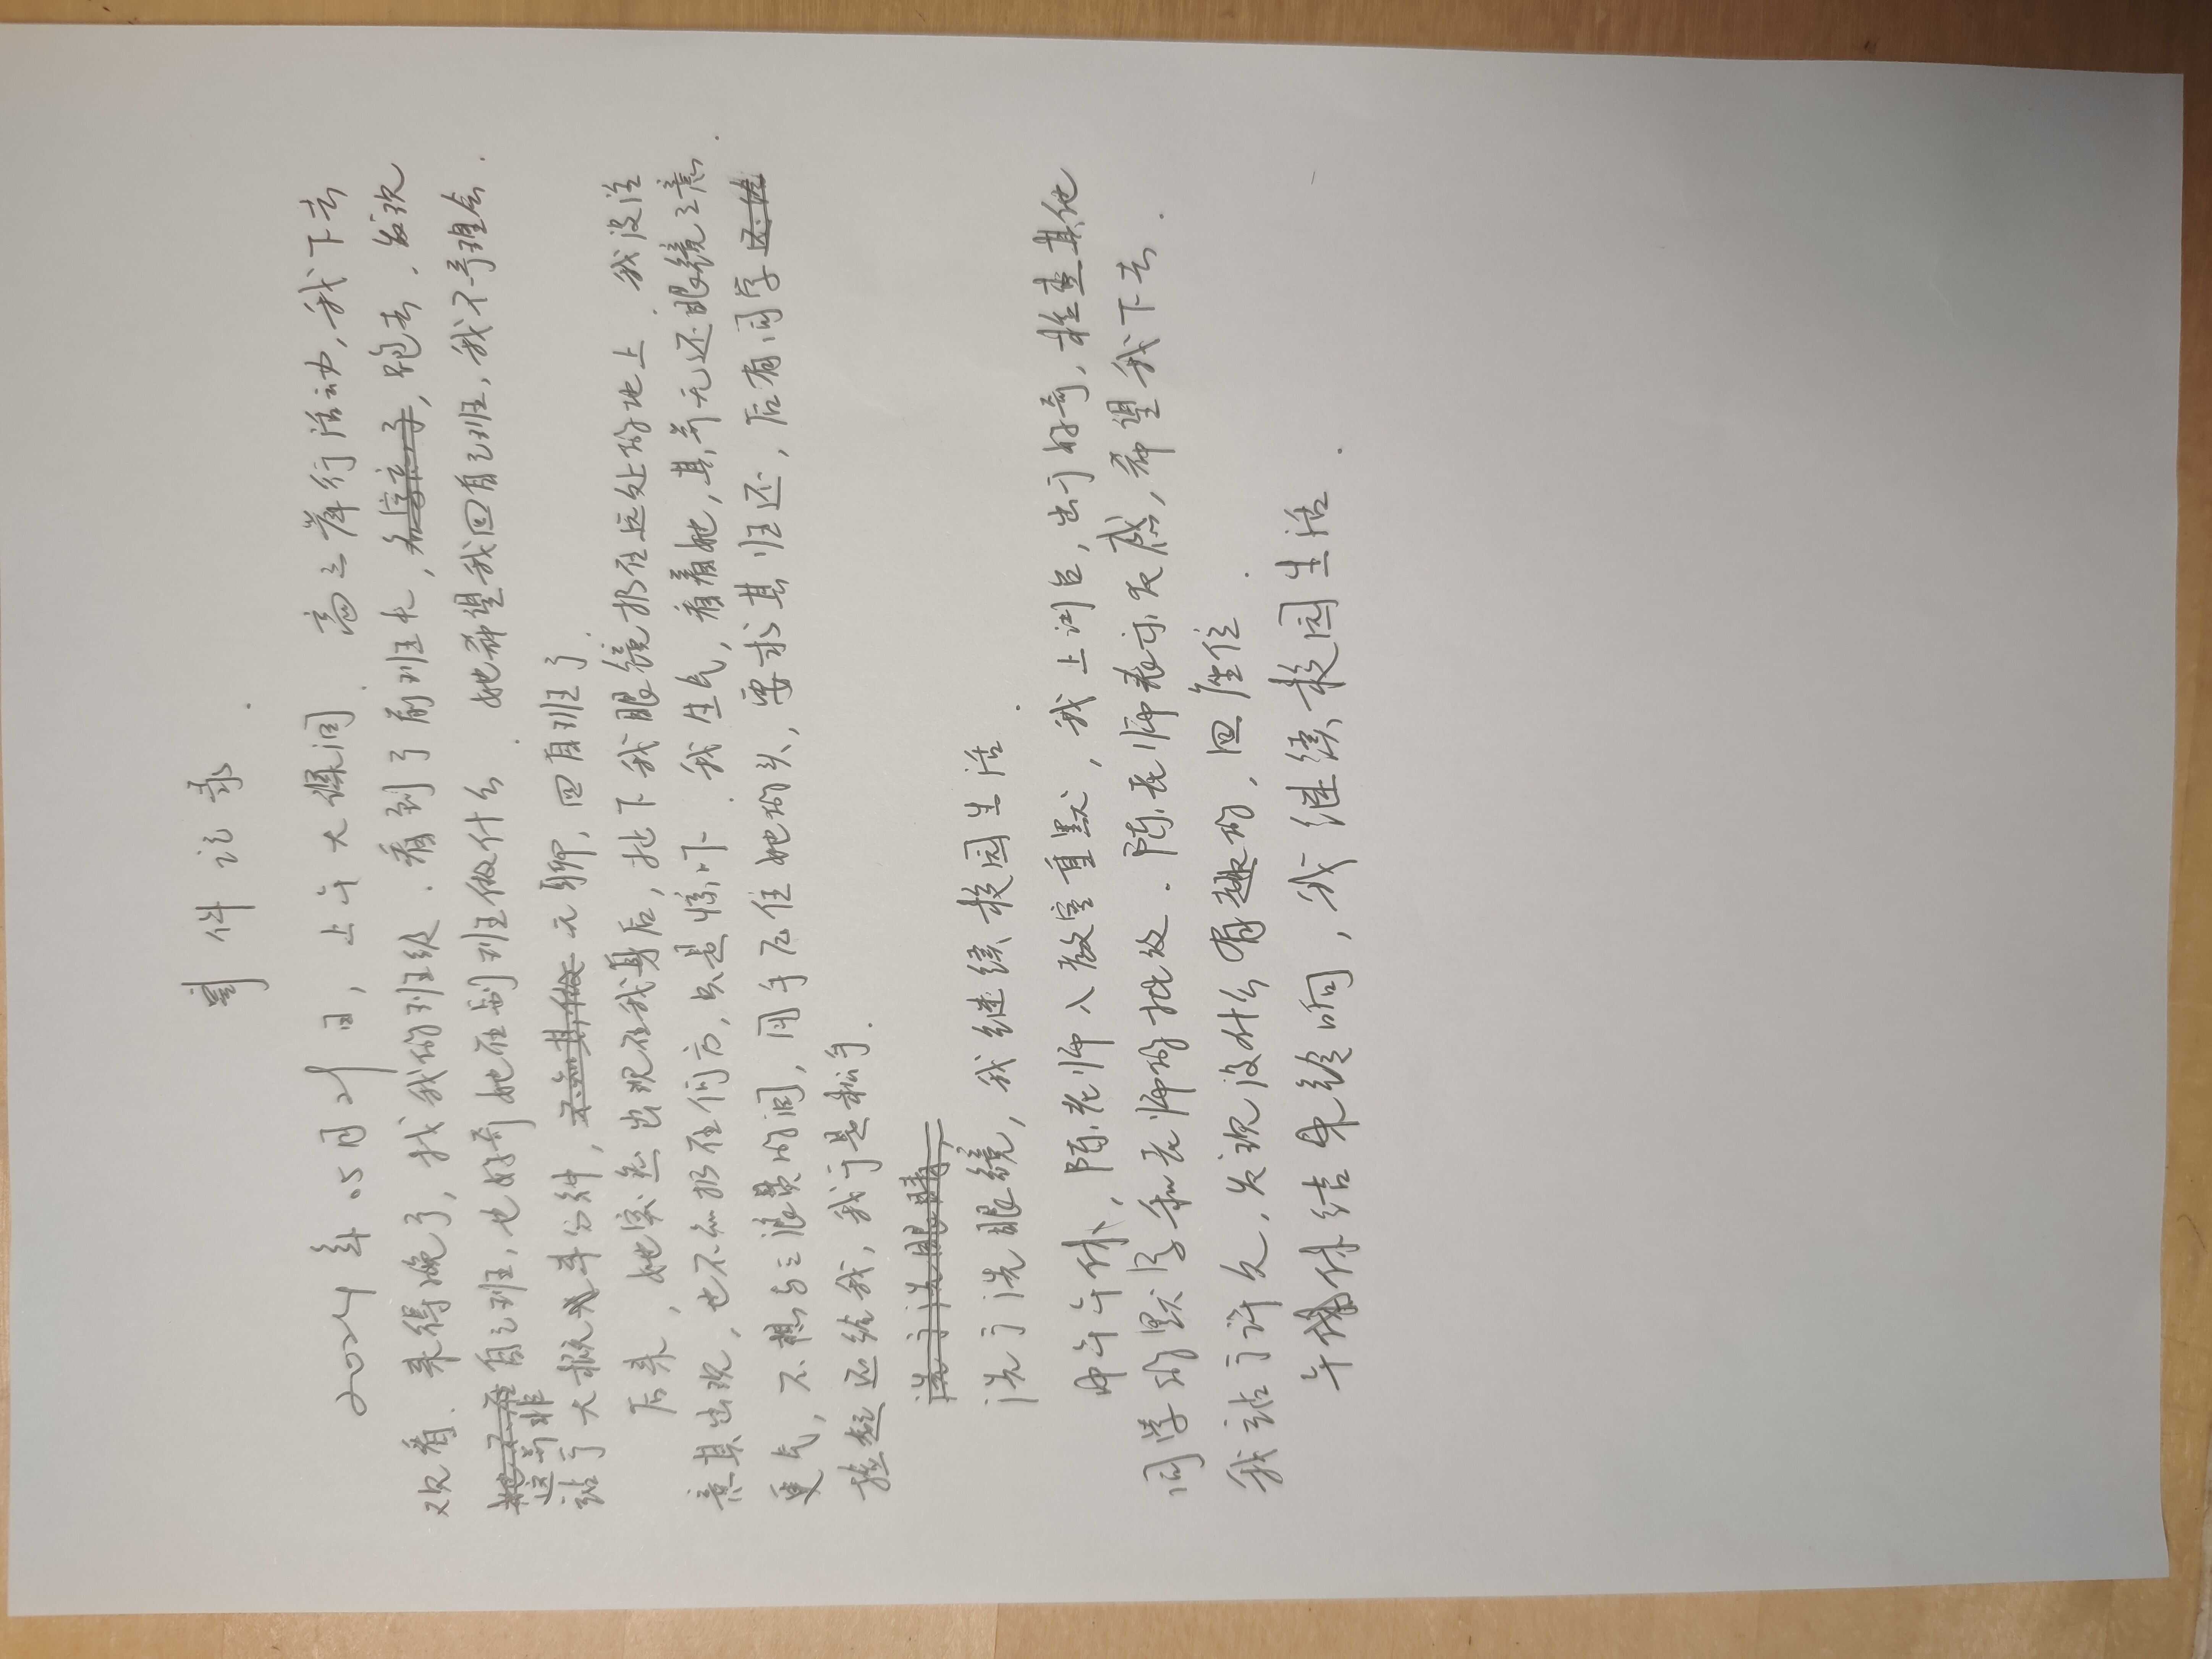 事件记录.
2024年05月29日,上午大课间.高三举行活动,我下去
观看.来得晚了,找我的班级.看到了前班长,名字忘了,跑去.发现
她不在自己班,也好奇她在别班做什么.她希望我回自己班,我不予理会.
这并非
站了大概半分钟,不知其做无聊,回自班了.
后来,她突然出现在我身后,扯下我眼镜扔在远处的地上.我没注
意其出现,也不知扔在何方,只是惊吓.我生气,看着她,其并无还眼镜之意.
更气,不想与之浪费时间,用手压住她的头,要求其归还,后有同学还给
捡起还给我,我于是松手.
洗了洗眼睛,
洗了洗眼镜,我继续校园生活.
中午午休,陈老师入教室重默,我上讲台,出于好奇,检查其他
同学的默写和老师的批改.陈老师表示反感,希望我下去.
我站了许久,发现没什么有趣的,回座位.
午休结束铃响,我继续校园生活.